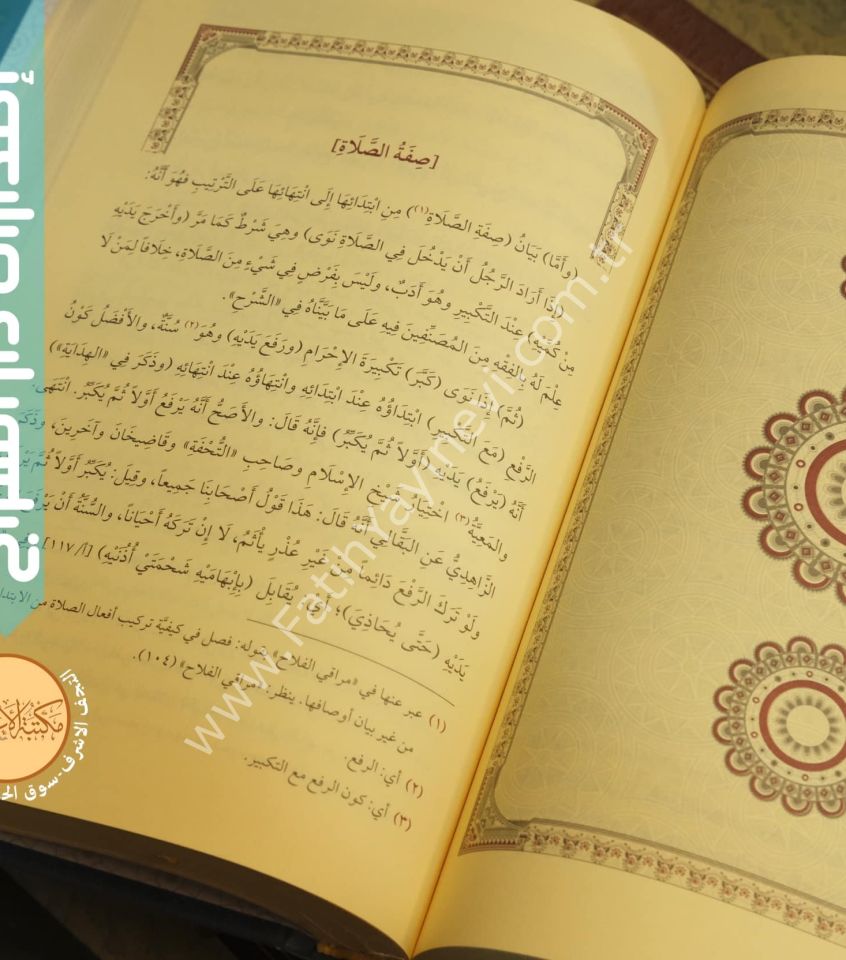 [صِفَةُ الصَّلَاةِ]
(وَأَمَّا) بَيَانُ (صِفَةِ الصَّلَاةِ(١)) مِنِ ابْتِدَائِهَا إِلَى انْتِهَائِهَا عَلَى التَّرْتِيبِ فَهُوَ أَنَّهُ:
(إِذَا أَرَادَ الرَّجُلُ أَنْ يَدْخُلَ فِي الصَّلَاةِ نَوَى) وَهِيَ شَرْطٌ كَمَا مَرَّ (وَأَخْرَجَ يَدَيْهِ
مِنْ كُمَّيْهِ) عِنْدَ التَّكْبِيرِ وَهُوَ أَدَبٌ، وَلَيْسَ بِفَرْضٍ فِي شَيْءٍ مِنَ الصَّلَاةِ، خِلَافاً لِمَنْ لَا
عِلْمَ لَهُ بِالْفِقْهِ مِنَ الْمُصَنِّفِينَ فِيهِ عَلَى مَا بَيَّنَّاهُ فِي «الشَّرْحِ».
(ثُمَّ) إِذَا نَوَى (كَبَّرَ) تَكْبِيرَةَ الإِحْرَامِ (وَرَفَعَ يَدَيْهِ) وَهُوَ(٢) سُنَّةٌ، وَالأَفْضَلُ كَوْنُ
الرَّفْعِ (مَعَ التَّكْبِيرِ) ابْتِدَاؤُهُ عِنْدَ ابْتِدَائِهِ وَانْتِهَاؤُهُ عِنْدَ انْتِهَائِهِ (وَذَكَرَ فِي «الْهِدَايَةِ»)
أَنَّهُ (يَرْفَعُ) يَدَيْهِ (أَوَّلاً ثُمَّ يُكَبِّرُ) فَإِنَّهُ قَالَ: وَالأَصَحُّ أَنَّهُ يَرْفَعُ أَوَّلاً ثُمَّ يُكَبِّرُ. انْتَهَى.
وَالْمَعِيَّةُ(٣) اخْتِيَارُ شَيْخِ الإِسْلَامِ وَصَاحِبِ «التُّحْفَةِ» وَقَاضِيخَانَ وَآخَرِينَ، وَذَكَرَ
الزَّاهِدِيُّ عَنِ الْبَقَّالِيِّ أَنَّهُ قَالَ: هَذَا قَوْلُ أَصْحَابِنَا جَمِيعاً، وَقِيلَ: يُكَبِّرُ أَوَّلاً ثُمَّ
وَلَوْ تَرَكَ الرَّفْعَ دَائِماً مِنْ غَيْرِ عُذْرٍ يَأْثَمُ، لَا إِنْ تَرَكَهُ أَحْيَاناً، وَالسُّنَّةُ أَنْ يَرْفَعَ
يَدَيْهِ (حَتَّى يُحَاذِيَ)؛ أَيْ: يُقَابِلَ (بِإِبْهَامَيْهِ شَحْمَتَيْ أُذُنَيْهِ) [أ/١١٧]
(١) عبر عنها في «مراقي الفلاح» بقوله: فصل في كيفيَّة تركيب أفعال الصلاة من
من غير بيان أوصافها. ينظر: «مراقي الفلاح» (١٠٤).
(٢) أي: الرفع.
(٣) أي: كون الرفع مع التكبير.
إصدارات دار السراج
النجف الاشرف-سوق
www.FatihYayinevi.com.tr